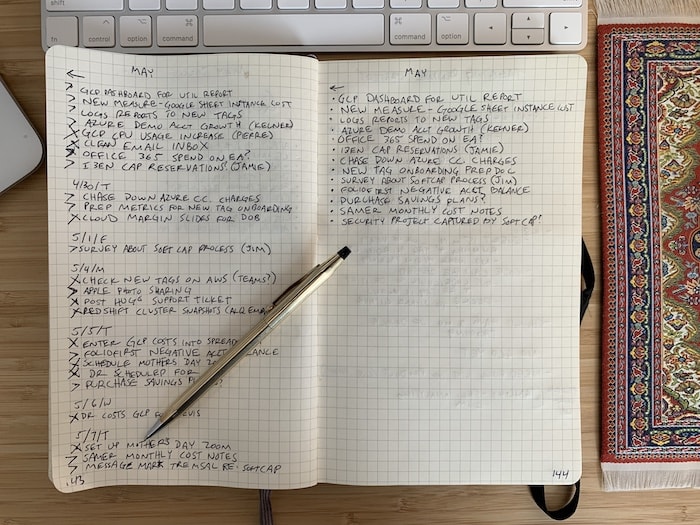 shift
fn
control
option
command
command
option
shift
MAY
←
> GCP DASHBOARD FOR UTIL REPORT
> NEW MEASURE - GOOGLE SHEET INSTANCE COST
> LOGS REPORTS TO NEW TAGS
> AZURE DEMO ACCT GROWTH (KELNER)
X GCP CPU USAGE INCREASE (PIERRE)
X CLEAN EMAIL INBOX
> OFFICE 365 SPEND ON EA?
> I3EN CAP RESERVATIONS? (JAMIE)
4/30/T
> CHASE DOWN AZURE CC. CHARGES
> PREP METRICS FOR NEW TAG ONBOARDING
X CLOUD MARGIN SLIDES FOR DOB
5/1/F
> SURVEY ABOUT SOFT CAP PROCESS (JIM)
5/4/M
X CHECK NEW TAGS ON AWS (TEAMS?)
> APPLE PHOTO SHARING
X POST HUGS SUPPORT TICKET
X REDSHIFT CLUSTER SNAPSHOTS
5/5/T
X ENTER GCP COSTS INTO
> FOLIOFIRST NEGATIVE ACCT
SCHEDULE MOTHERS DAY
X DR SCHEDULED FOR
> PURCHASE SAVINGS
5/6/W
X DR COSTS GCP
5/7/T
X SET UP MOTHERS DAY ZOOM
> SAMER MONTHLY COST NOTES
> MESSAGE MARK TREMSAL RE: SOFTCAP
143
MAY
←
• GCP DASHBOARD FOR UTIL REPORT
• NEW MEASURE - GOOGLE SHEET INSTANCE COST
• LOGS REPORTS TO NEW TAGS
• AZURE DEMO ACCT GROWTH (KELNER)
• OFFICE 365 SPEND ON EA?
• I3EN CAP RESERVATIONS (JAMIE)
• CHASE DOWN AZURE CC CHARGES
• NEW TAG ONBOARDING PREP DOC
• SURVEY ABOUT SOFTCAP PROCESS (JIM)
• FOLIOFIRST NEGATIVE ACCT BALANCE
• PURCHASE SAVINGS PLANS?
• SAMER MONTHLY COST NOTES
• SECURITY PROJECT CAPTURED BY SOFTCAP?
144